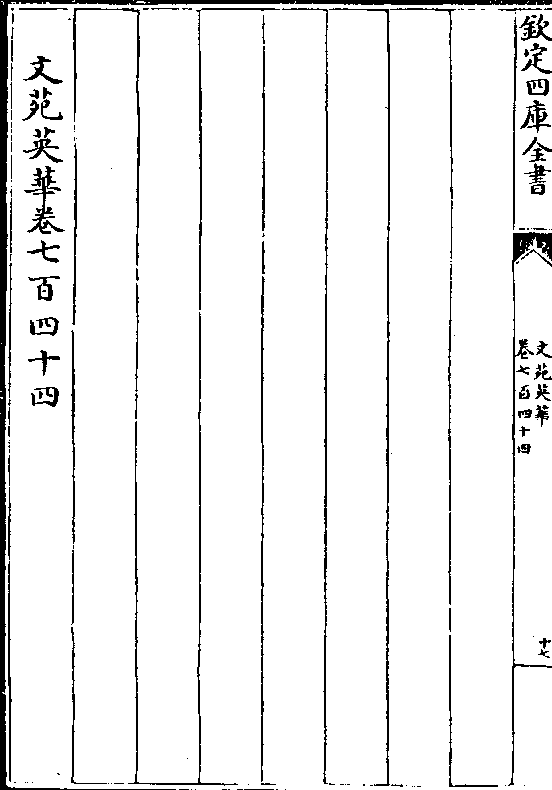 欽定四庫全書
文苑英華
卷七百四十四
十七
文苑英華卷七百四十四